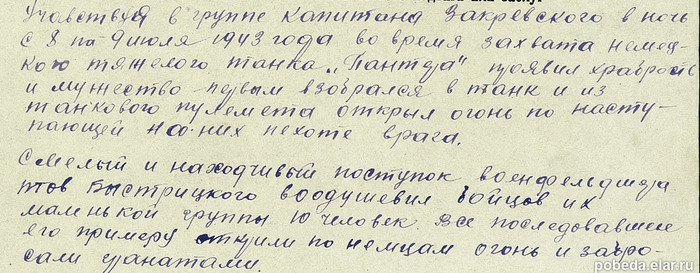 Участвуя в группе капитана Закревского в ночь
с 8 на 9 июля 1943 года во время захвата немец-
кого тяжелого танка „Пантера" проявил храбрость
и мужество первым взобрался в танк и из
танкового пулемета открыл огонь по насту-
пающей на них пехоте врага.
Смелый и находчивый поступок военфельдшера
тов Быстрицкого воодушевил бойцов их
маленькой группы 10 человек. Все последовавшие
его примеру открыли по немцам огонь и забро-
сали гранатами.
pobeda.elar.ru